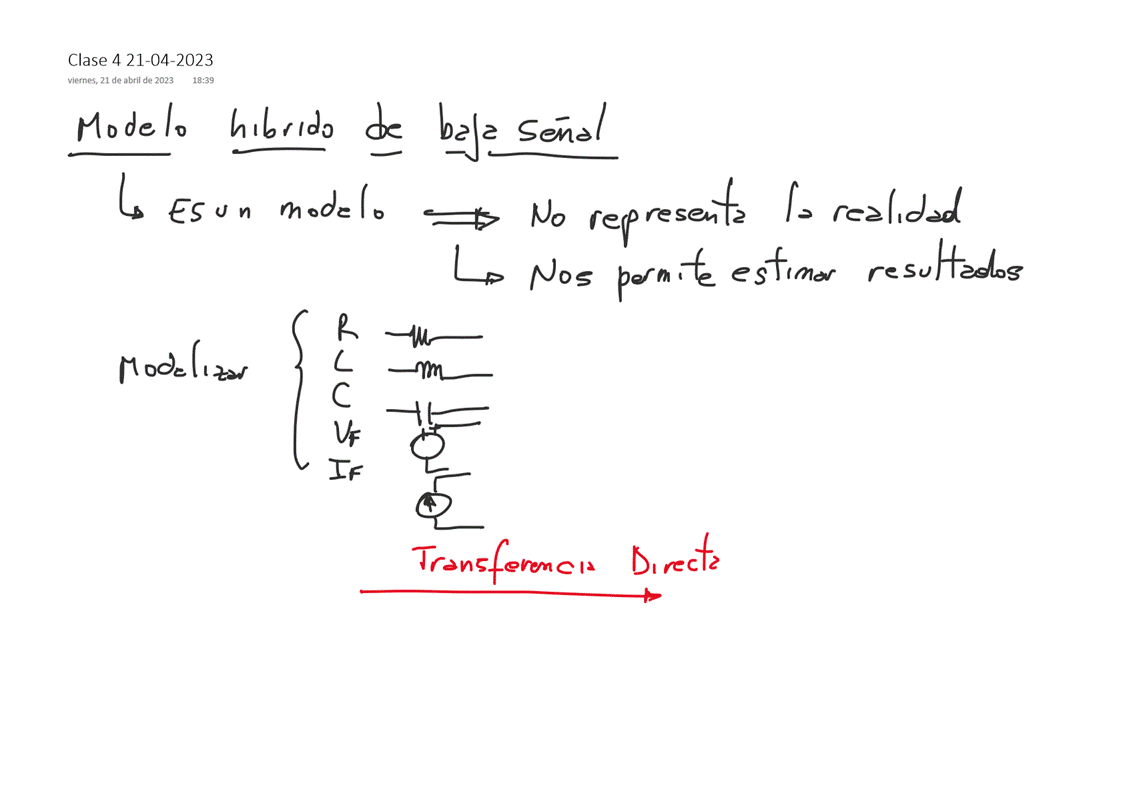 Clase 4 21-04-2023
viernes, 21 de abril de 2023 18:39
Modelo hibrido de baja señal
Es un modelo No representa la realidad
Nos permite estimar resultados
Modelizar
R
L
C
VF
IF
Transferencia Directa